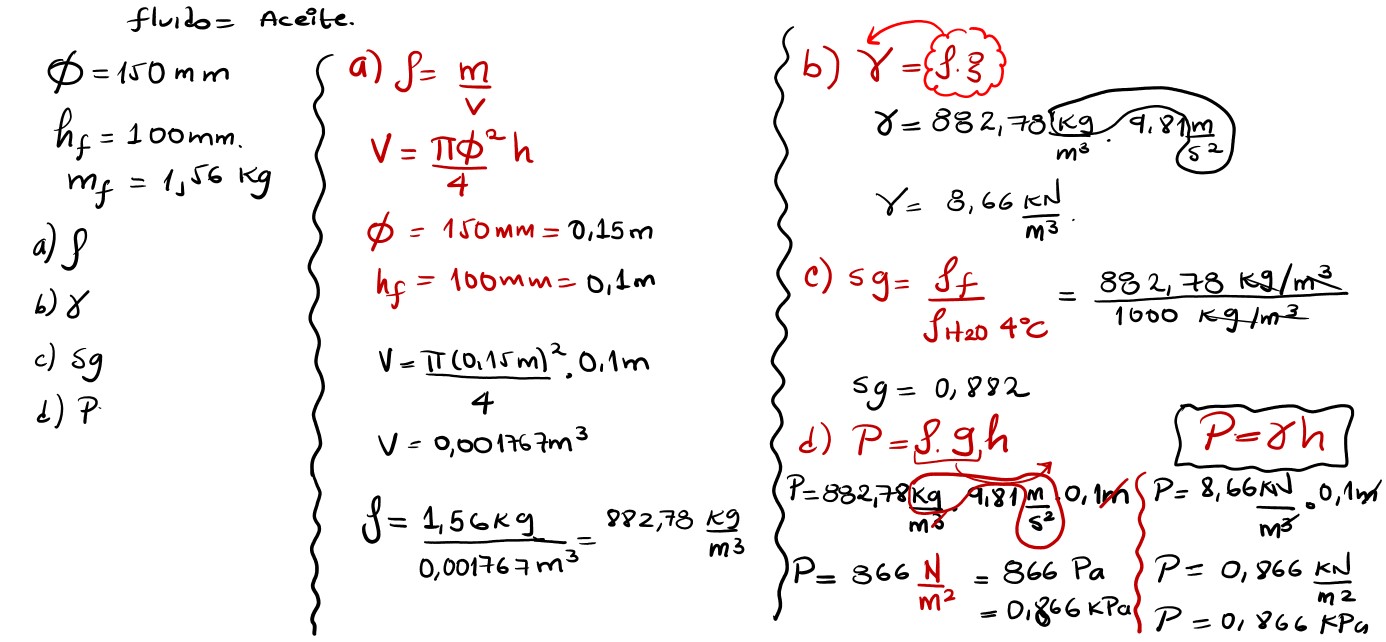 fluido = Aceite.
ϕ = 150 mm
hf = 100mm.
mf = 1,56 Kg
a) ρ
b) γ
c) Sg
d) P.
a) ρ = m/V
V = πϕ²h/4
ϕ = 150mm = 0,15m
hf = 100mm = 0,1m
V = π(0,15m)²/4 . 0,1m
V = 0,001767m³
ρ = 1,56kg/0,001767m³ = 882,78 kg/m³
b) γ = ρ.g
γ = 882,78 kg/m³ . 9,81 m/s²
γ = 8,66 KN/m³.
c) sg = ρf/ρH2O 4°C = 882,78 kg/m³/1000 kg/m³
sg = 0,882
d) P = ρ.g.h
P = 882,78 kg/m³ . 9,81 m/s² . 0,1m
P = 866 N/m² = 866 Pa
= 0,866 KPa
P = γh
P = 8,66 KN/m³ . 0,1m
P = 0,866 KN/m2
P = 0,866 KPa